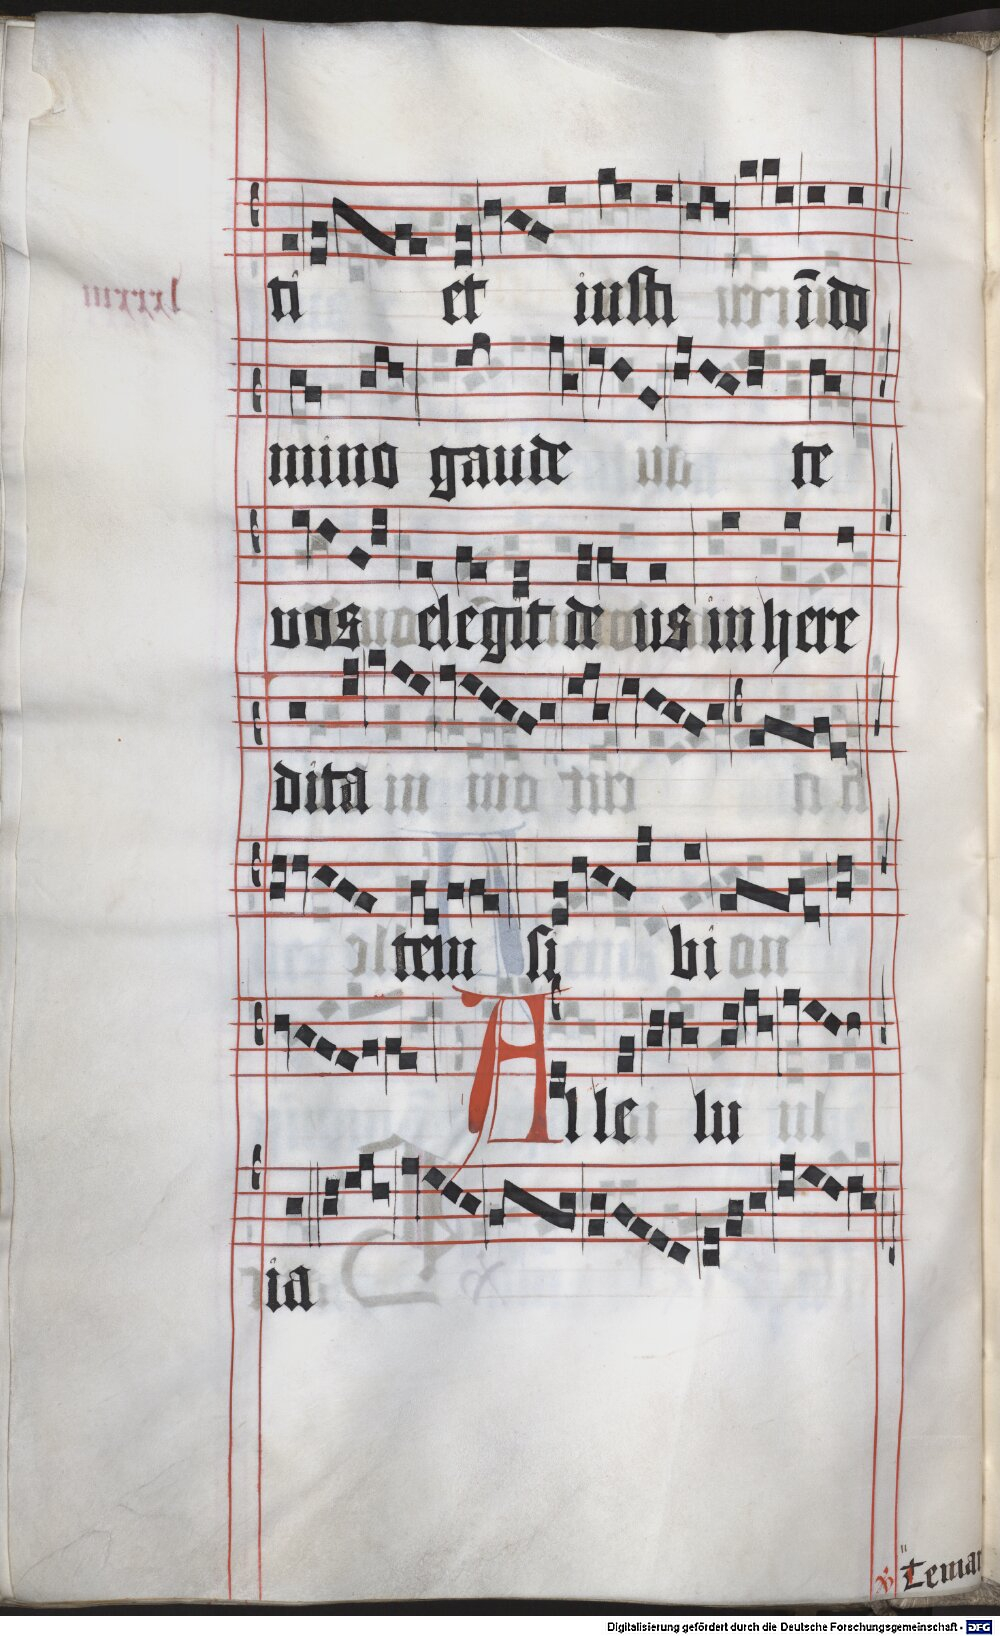 ti et iusti ī do
mino gaude te
vos elegit de us in here
dita
tem si bi
Alle lu
ia
℣ Te mar
Digitalisierung gefördert durch die Deutsche Forschungsgemeinschaft - DFG